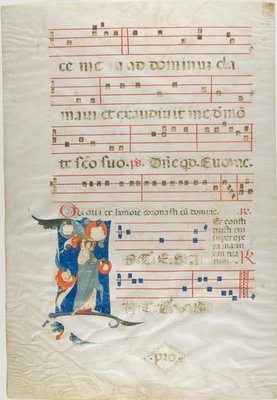 ce me ad dominum cla
mavi et exaudivit me de mo
te sco suo. ps. Dne qd. Evovae.
Gloria et honore coronasti eu domine. R.
Et consti
tuisti eu
super ope
ra manu
um tua
rum. R.
pro